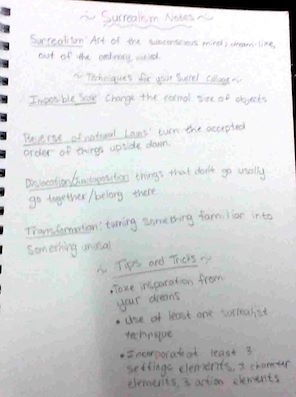 ~ Surrealism Notes ~
Surrealism: Art of the subconscious mind; dream-like,
out of the ordinary, weird.
~ Techniques for your Surreal Collage ~
Impossible Scale: Change the normal size of objects
Reverse of natural Laws: turn the accepted
order of things upside down.
Dislocation/Juxtaposition: things that don't go usally
go together/belong there
Transformation: turning something familiar into
something unusal
~ Tips and Tricks ~
• Take insparation from
your dreams
• Use at least one surrealist
technique
• Incorporate at least 3
settings elements, 3 character
elements, 3 action elements